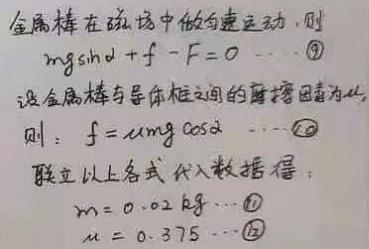 金属棒在磁场中做匀速运动,则
mgsinα + f - F = 0 ····· ⑨
设金属棒与导体框之间的摩擦因素为μ,
则: f = μmg cosα ····· ⑩
联立以上各式代入数据得:
m = 0.02 kg ··· ⑪
μ = 0.375 ··· ⑫